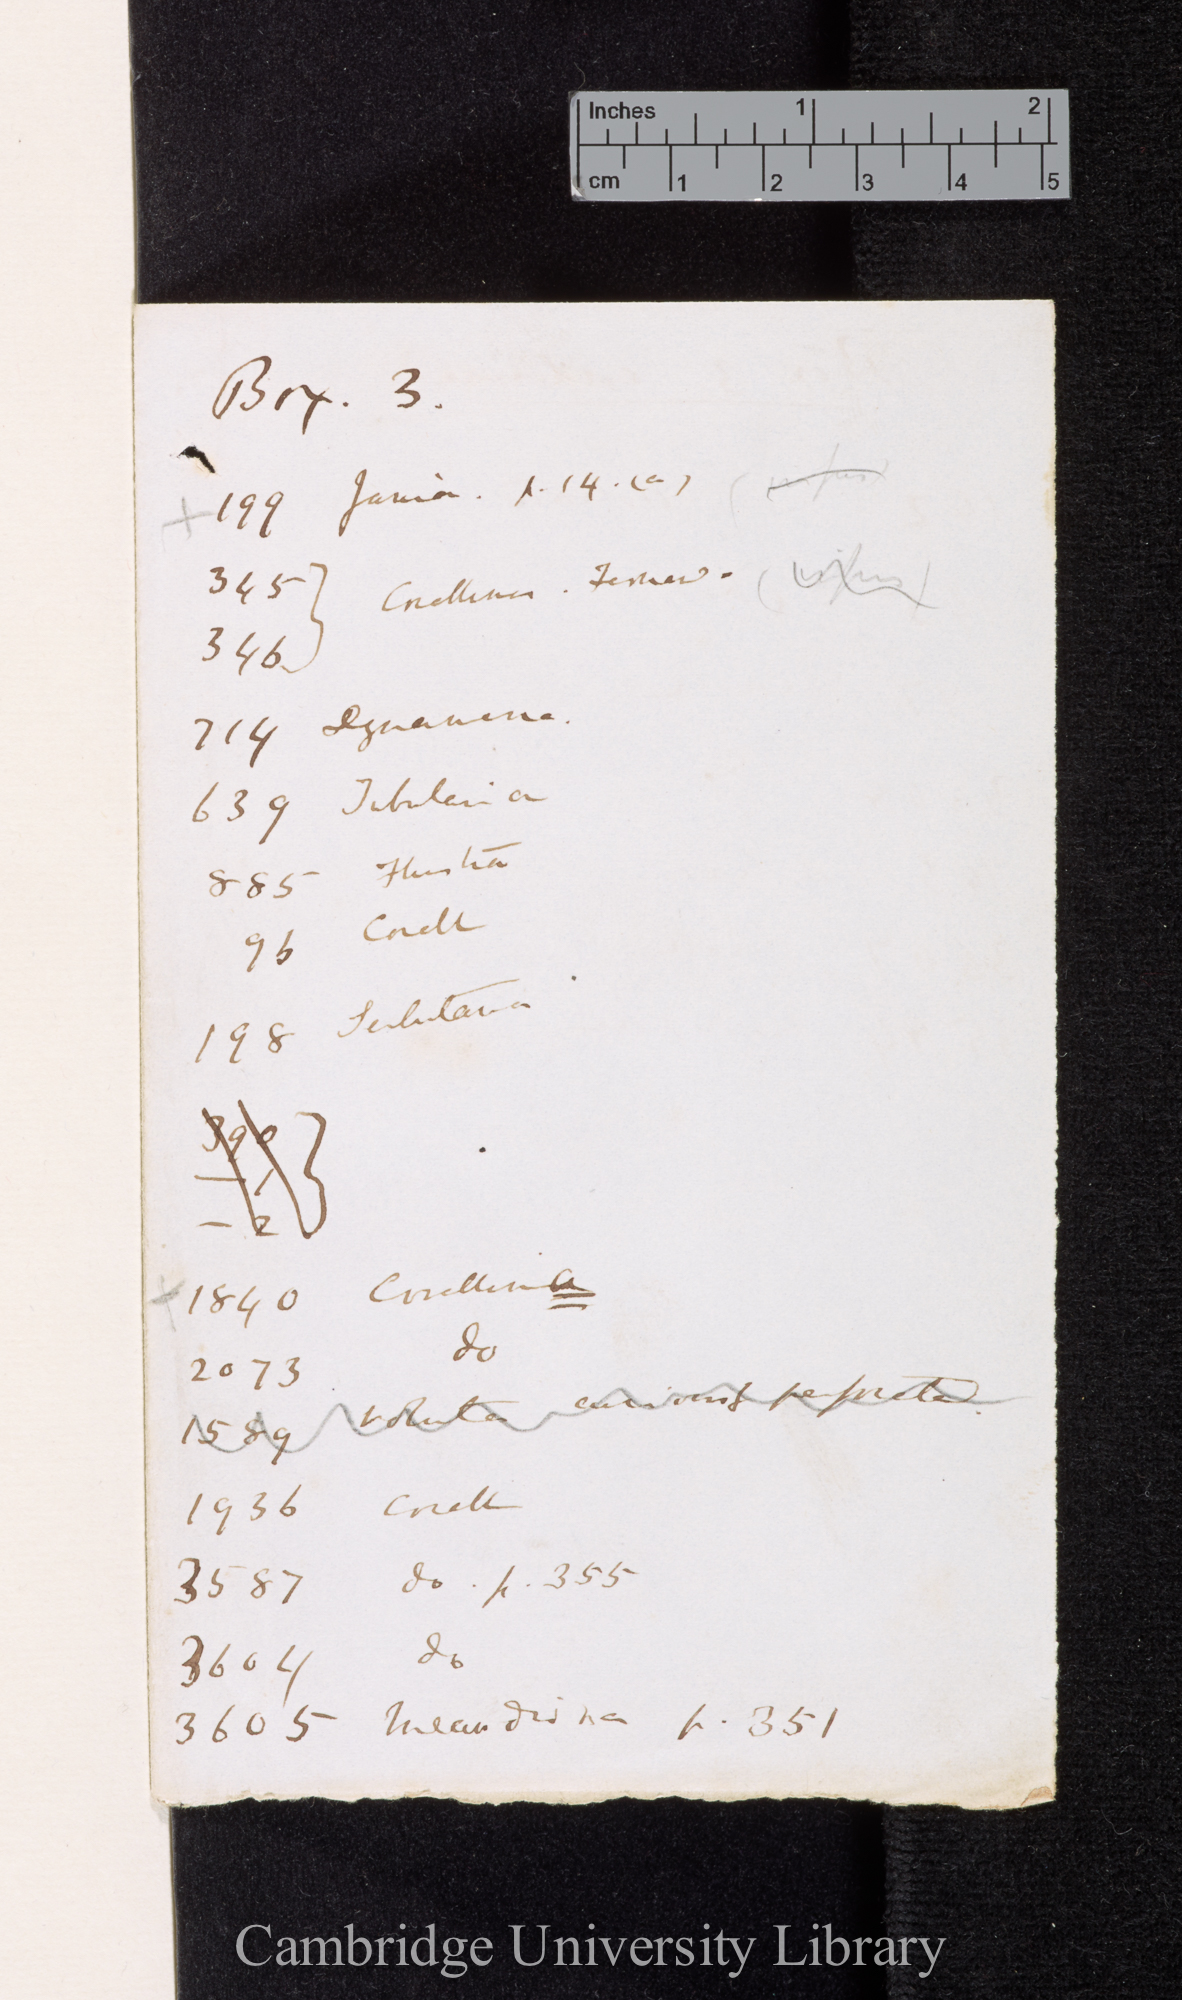 Inches 1 2
cm 1 2 3 4 5
Box. 3.
+ 199 Jania. p. 14. (a)
345 } Corallines.
346
714
639 Tubularia
885 Flustra
96 Corall
198
390 }
— 1
— 2
+ 1840 Corallina
2073 do
1589 Voluta curiously perforated.
1936 Corall
3587 do. p. 355
3604 do
3605 Meandrina p. 351
Cambridge University Library